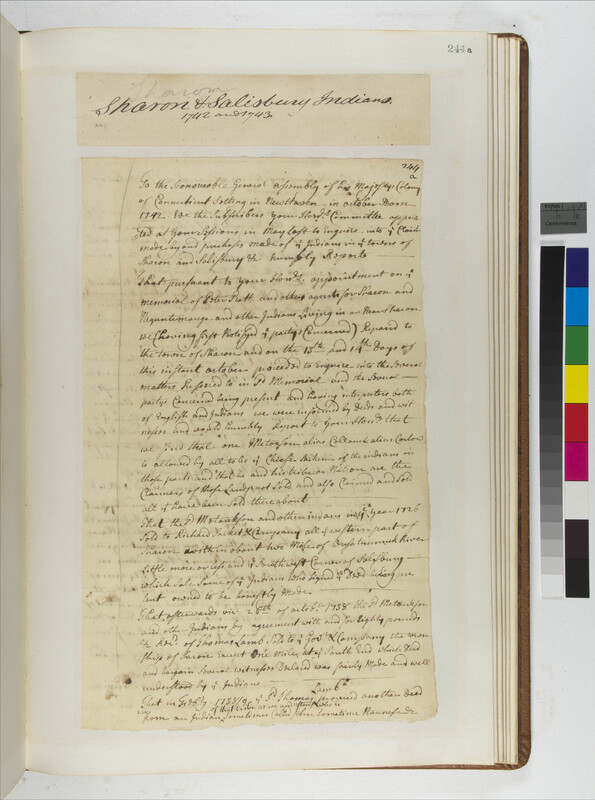 244a
Sharon
Sharon & Salisbury Indians.
1742 and 1743.
244
a
To the Honourable General assembly of his Majestys Colony
of Connecticut Sitting in Newhaven in october
1742 We the Subscribers your Hon.rs Committee appoin
ted at your Sessions in May Last to Enquire into ye Claim
made and purchases made of ye Indians in ye towns of
Sharon and Salisbury &c humbly Report
That pursuant to your Hon.rs appointment on ye
memorial of Peter Pratt and others agents for Sharon and
and other Indians Living in or near Sharon
we (having first Notifyed ye partys Concerned) Repaired to
the towne of Sharon and on the 13th and 14th Days of
this instant october proceeded to Enquire into the Several
matters Refered to in sd Memorial and the Several
partys Concerned being present and having interpreters both
of English and Indians we were informed by Deeds and wit
nesses and would humbly Report to your Hon.rs that
we find that one Metoxson alias
is allowed by all to be ye Chiefe Sachem of the indians in
those parts and that he and his tribe or Nation are the
Claimers of those Lands not Sold and also Claimed and Sold
all yt have been Sold there about
That the sd and other indians in ye year 1726
Sold to Richard Sacket & Company all ye western part of
Sharon within about two Miles of River
Little more or less and ye Southwest Corner of Salisbury
which Sale Some of ye Indians who Signed ye Deed being pre
sent owned to be honestly Made
That afterwards viz of octobr 1738 the sd Metoxson
and other Indians by agreement with and for Eighty pounds
of Thomas Lamb Sold to ye Govr & Company the town
ship of Sharon Except One Mile at ye South End which Deed
and bargain Several witnesses Declared was fairly Made and well
understood by ye Indians
Lamb
That in 1738/9 ye sd Thomas procured another Deed
from an Indian Sometimes Called John Sometime